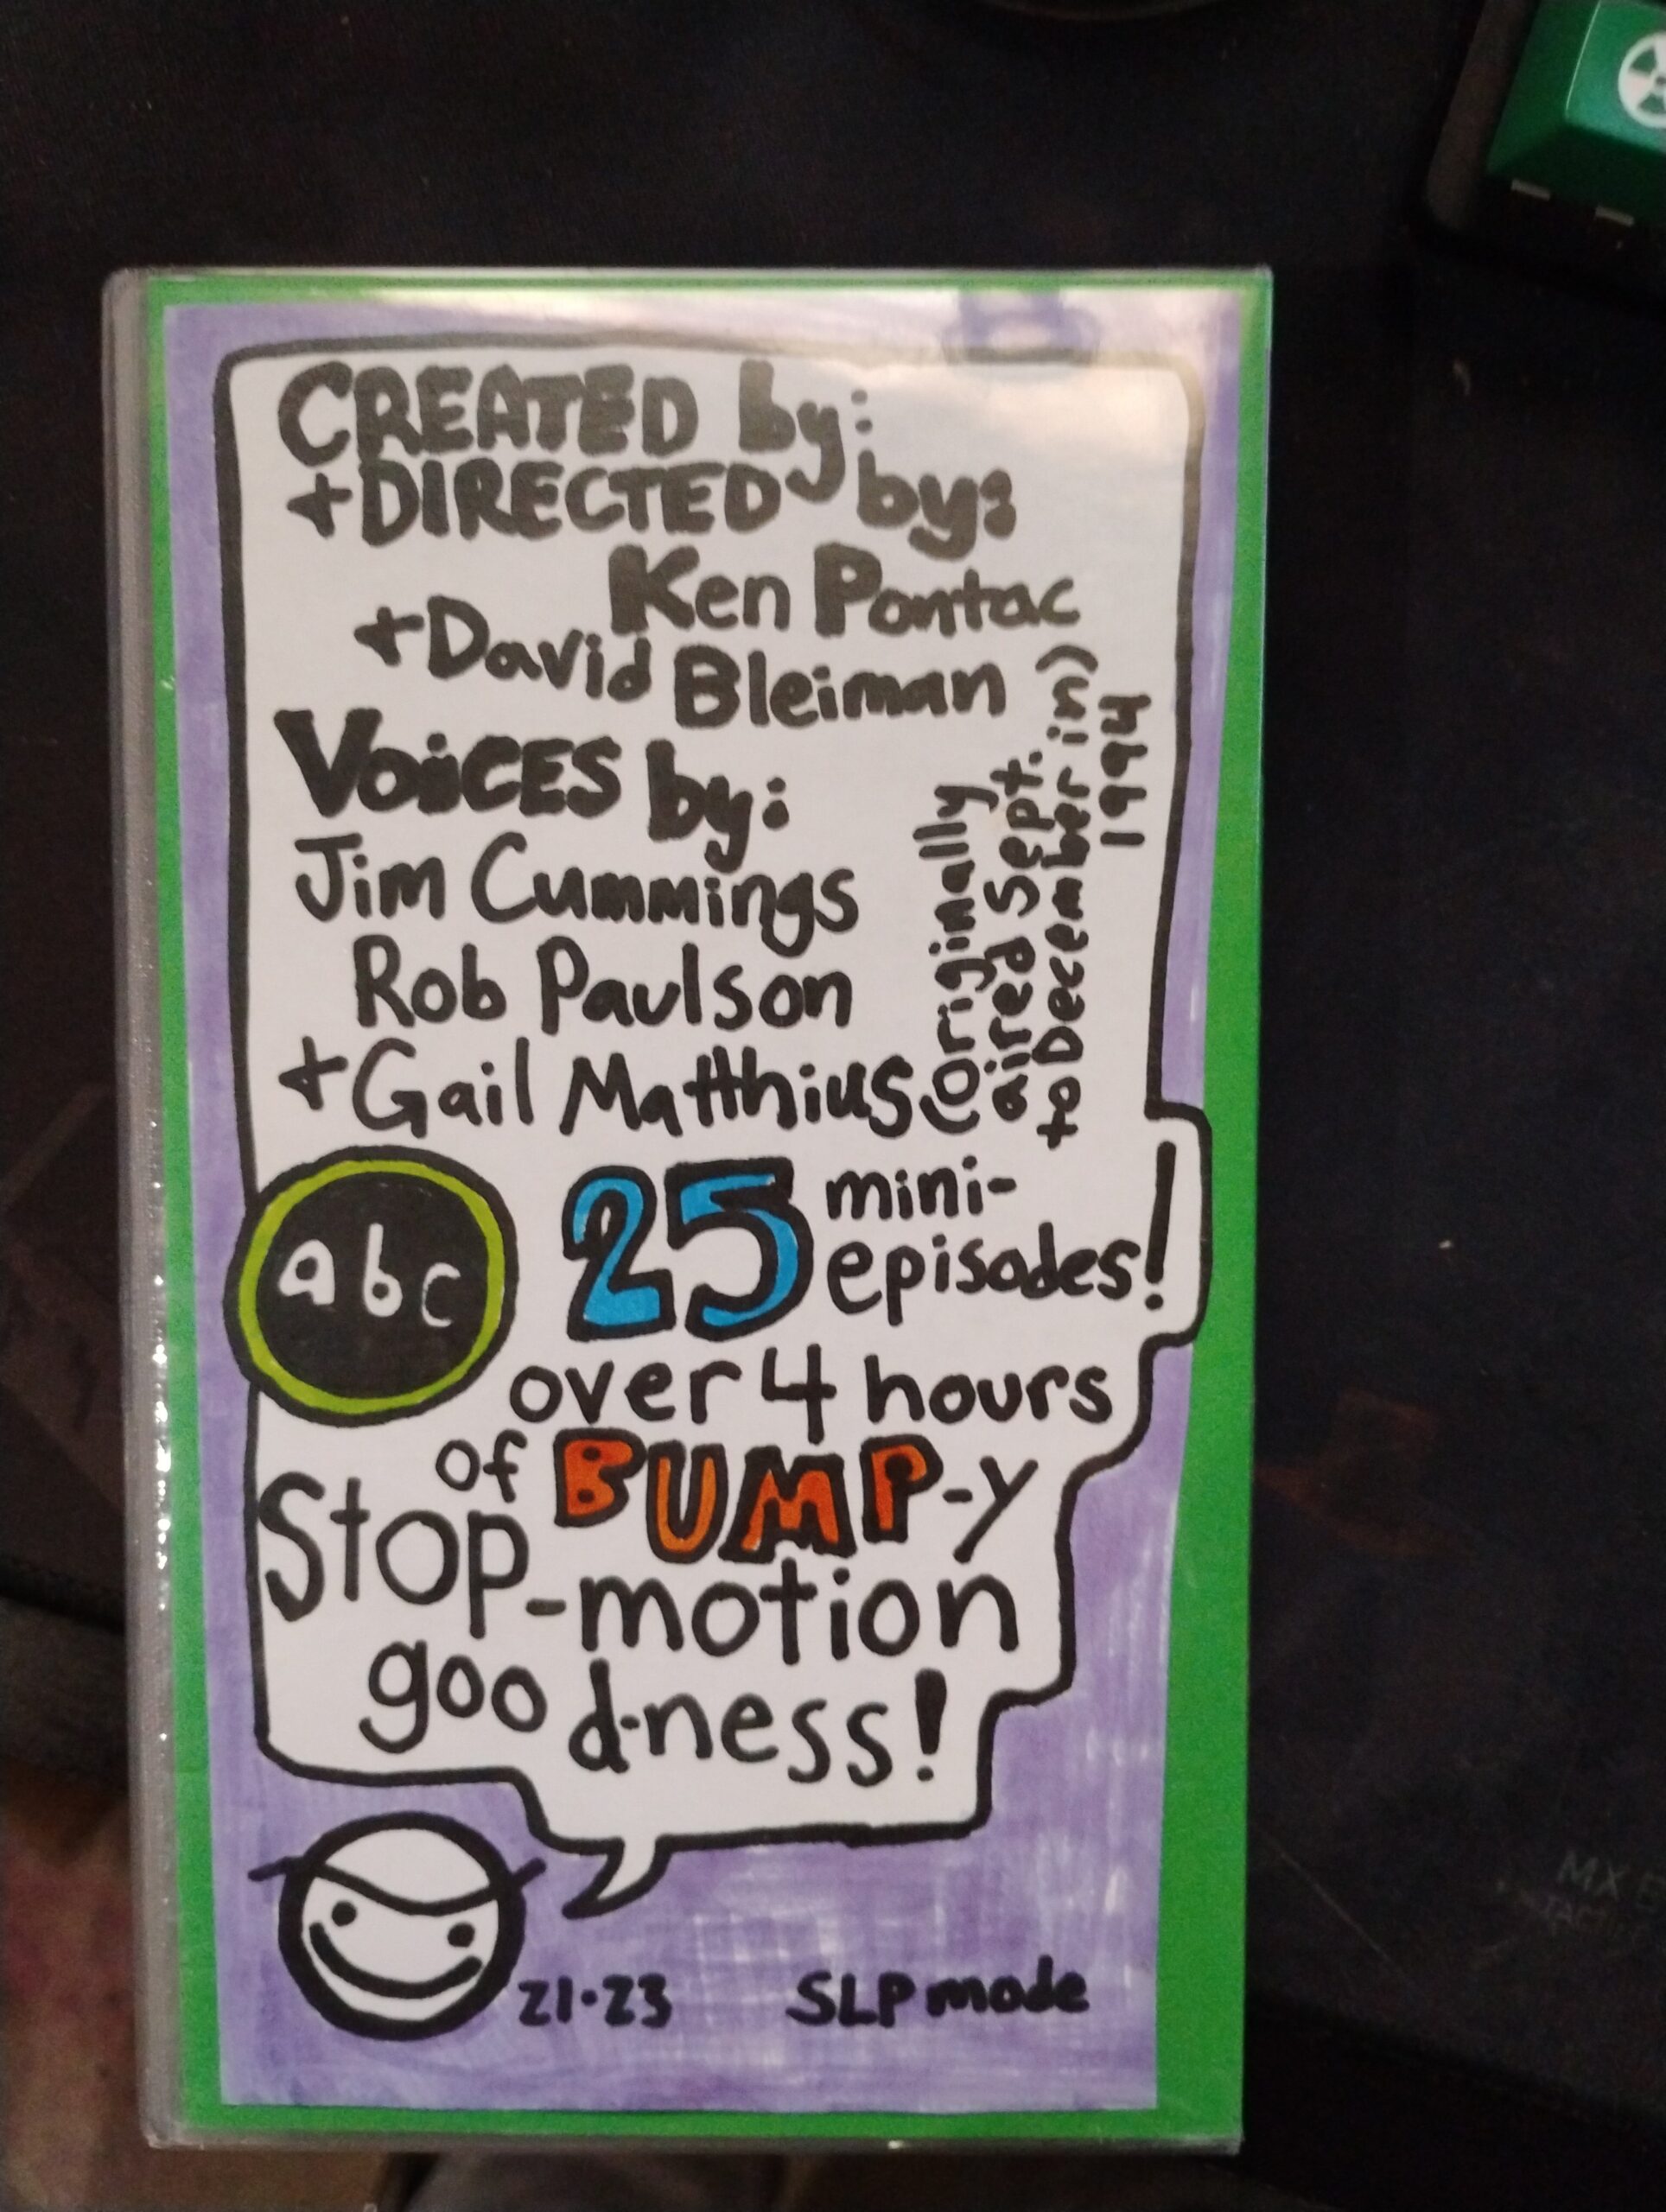 CREATED by:
+DIRECTED by:
Ken Pontac
+David Bleiman
VOiCES by:
Jim Cummings
Rob Paulson
+Gail Matthius
(originally
aired Sept.
to December in)
1994
abc
25 mini-
episodes!
over 4 hours
of BUMP-y
Stop-motion
good-ness!
21·23
SLP mode
MX